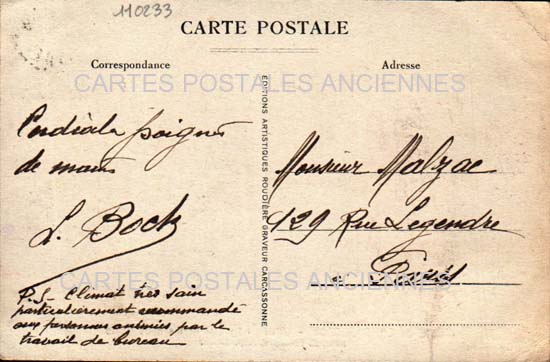 110233
CARTE POSTALE
Correspondance
Adresse
CARTES POSTALES ANCIENNES
EDITIONS ARTISTIQUES ROUDIÈRE GRAVEUR CARCASSONNE
Cordiale poignée
de mains
L. Bock
P.S- Climat très sain
particulièrement recommandé
aux personnes anémiées par le
travail de bureau
Monsieur Malzac
129 Rue Legendre
Paris
CARTES POSTALES ANCIENNES